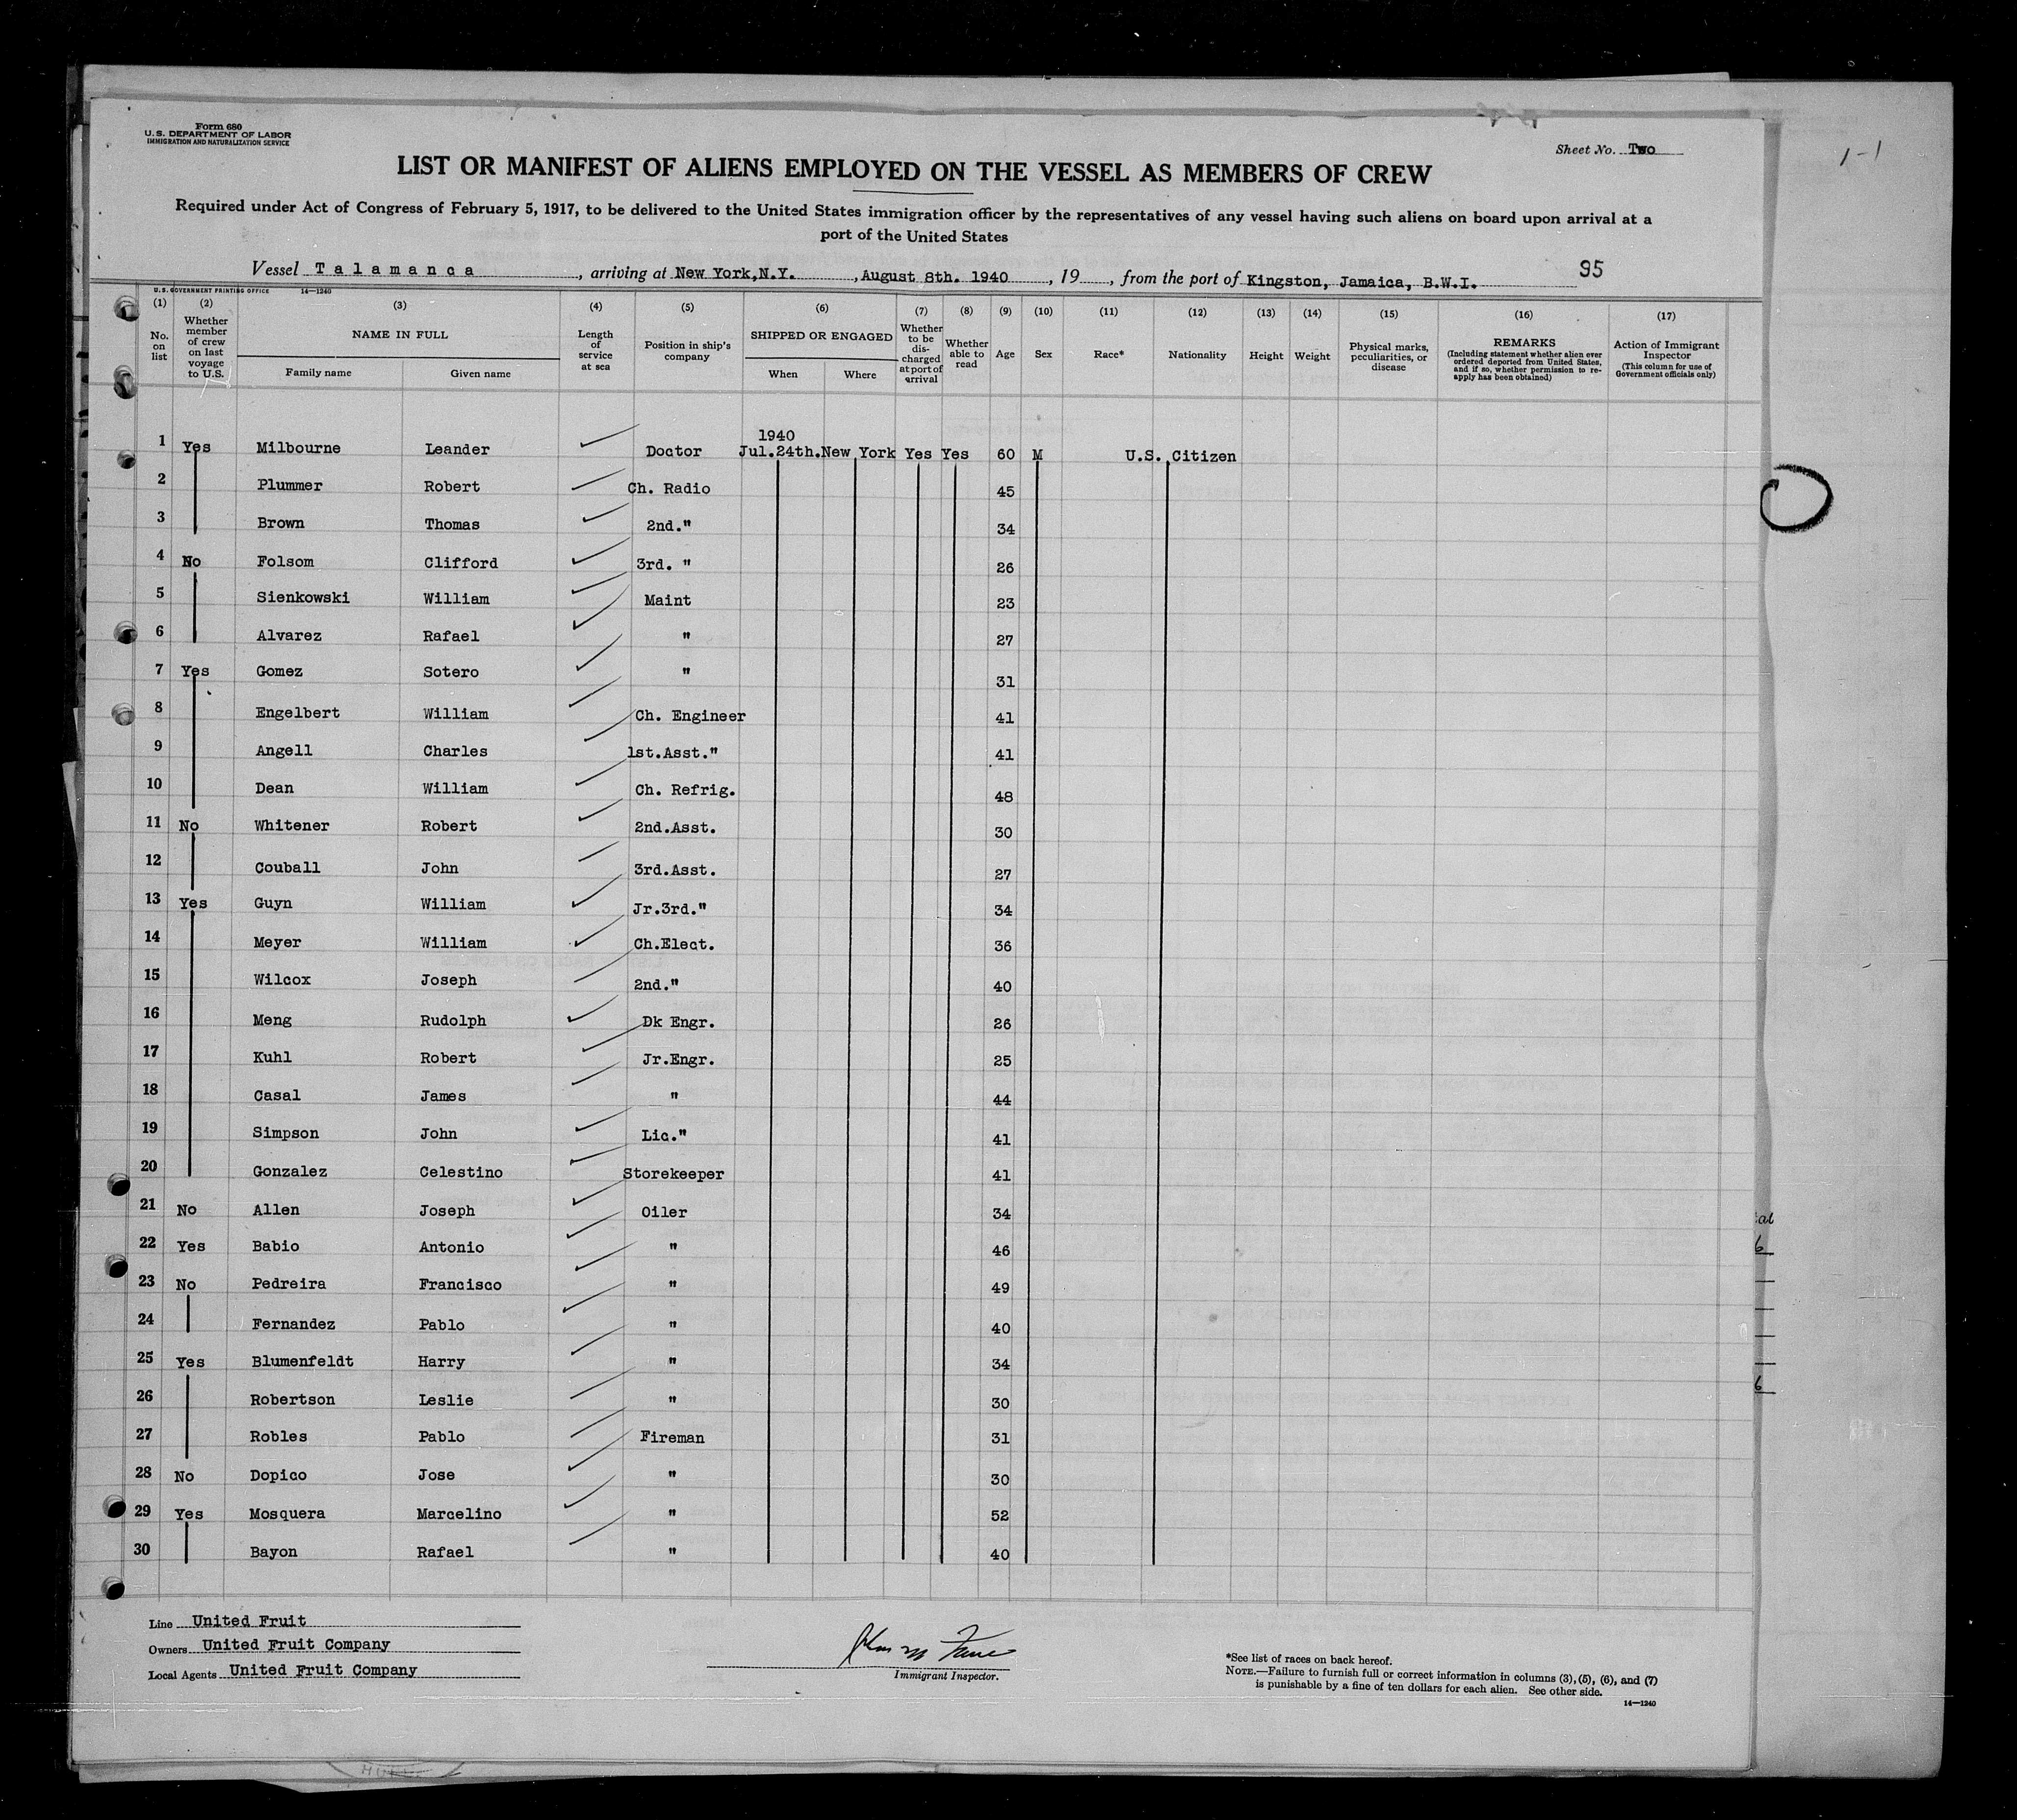 Form 680
U. S. DEPARTMENT OF LABOR
IMMIGRATION AND NATURALIZATION SERVICE
Sheet No. Two
1-1
LIST OR MANIFEST OF ALIENS EMPLOYED ON THE VESSEL AS MEMBERS OF CREW
Required under Act of Congress of February 5, 1917, to be delivered to the United States immigration officer by the representatives of any vessel having such aliens on board upon arrival at a
port of the United States
Vessel Talamanca, arriving at New York,N.Y., August 8th. 1940, 19, from the port of Kingston, Jamaica, B.W.I. 95
U. S. GOVERNMENT PRINTING OFFICE 14—1240
(1) (2) (3) (4) (5) (6) (7) (8) (9) (10) (11) (12) (13) (14) (15) (16) (17)
No. on list Whether member of crew on last voyage to U.S. NAME IN FULL Family name Given name Length of service at sea Position in ship's company SHIPPED OR ENGAGED When Where Whether to be discharged at port of arrival Whether able to read Age Sex Race* Nationality Height Weight Physical marks, peculiarities, or disease REMARKS (Including statement whether alien ever ordered deported from United States, and if so, whether permission to reapply has been obtained) Action of Immigrant Inspector (This column for use of Government officials only)
1940
1 Yes Milbourne Leander Doctor Jul.24th. New York Yes Yes 60 M U.S. Citizen
2 Plummer Robert Ch. Radio 45
3 Brown Thomas 2nd." 34
4 No Folsom Clifford 3rd. " 26
5 Sienkowski William Maint 23
6 Alvarez Rafael " 27
7 Yes Gomez Sotero " 31
8 Engelbert William Ch. Engineer 41
9 Angell Charles 1st.Asst." 41
10 Dean William Ch. Refrig. 48
11 No Whitener Robert 2nd.Asst. 30
12 Couball John 3rd.Asst. 27
13 Yes Guyn William Jr.3rd." 34
14 Meyer William Ch.Elect. 36
15 Wilcox Joseph 2nd." 40
16 Meng Rudolph Dk Engr. 26
17 Kuhl Robert Jr.Engr. 25
18 Casal James " 44
19 Simpson John Lic." 41
20 Gonzalez Celestino Storekeeper 41
21 No Allen Joseph Oiler 34
22 Yes Babio Antonio " 46
23 No Pedreira Francisco " 49
24 Fernandez Pablo " 40
25 Yes Blumenfeldt Harry " 34
26 Robertson Leslie " 30
27 Robles Pablo Fireman 31
28 No Dopico Jose " 30
29 Yes Mosquera Marcelino " 52
30 Bayon Rafael " 40
Line United Fruit
Owners United Fruit Company
Local Agents United Fruit Company
Immigrant Inspector.
*See list of races on back hereof.
NOTE.—Failure to furnish full or correct information in columns (3), (5), (6), and (7)
is punishable by a fine of ten dollars for each alien. See other side.
14—1240